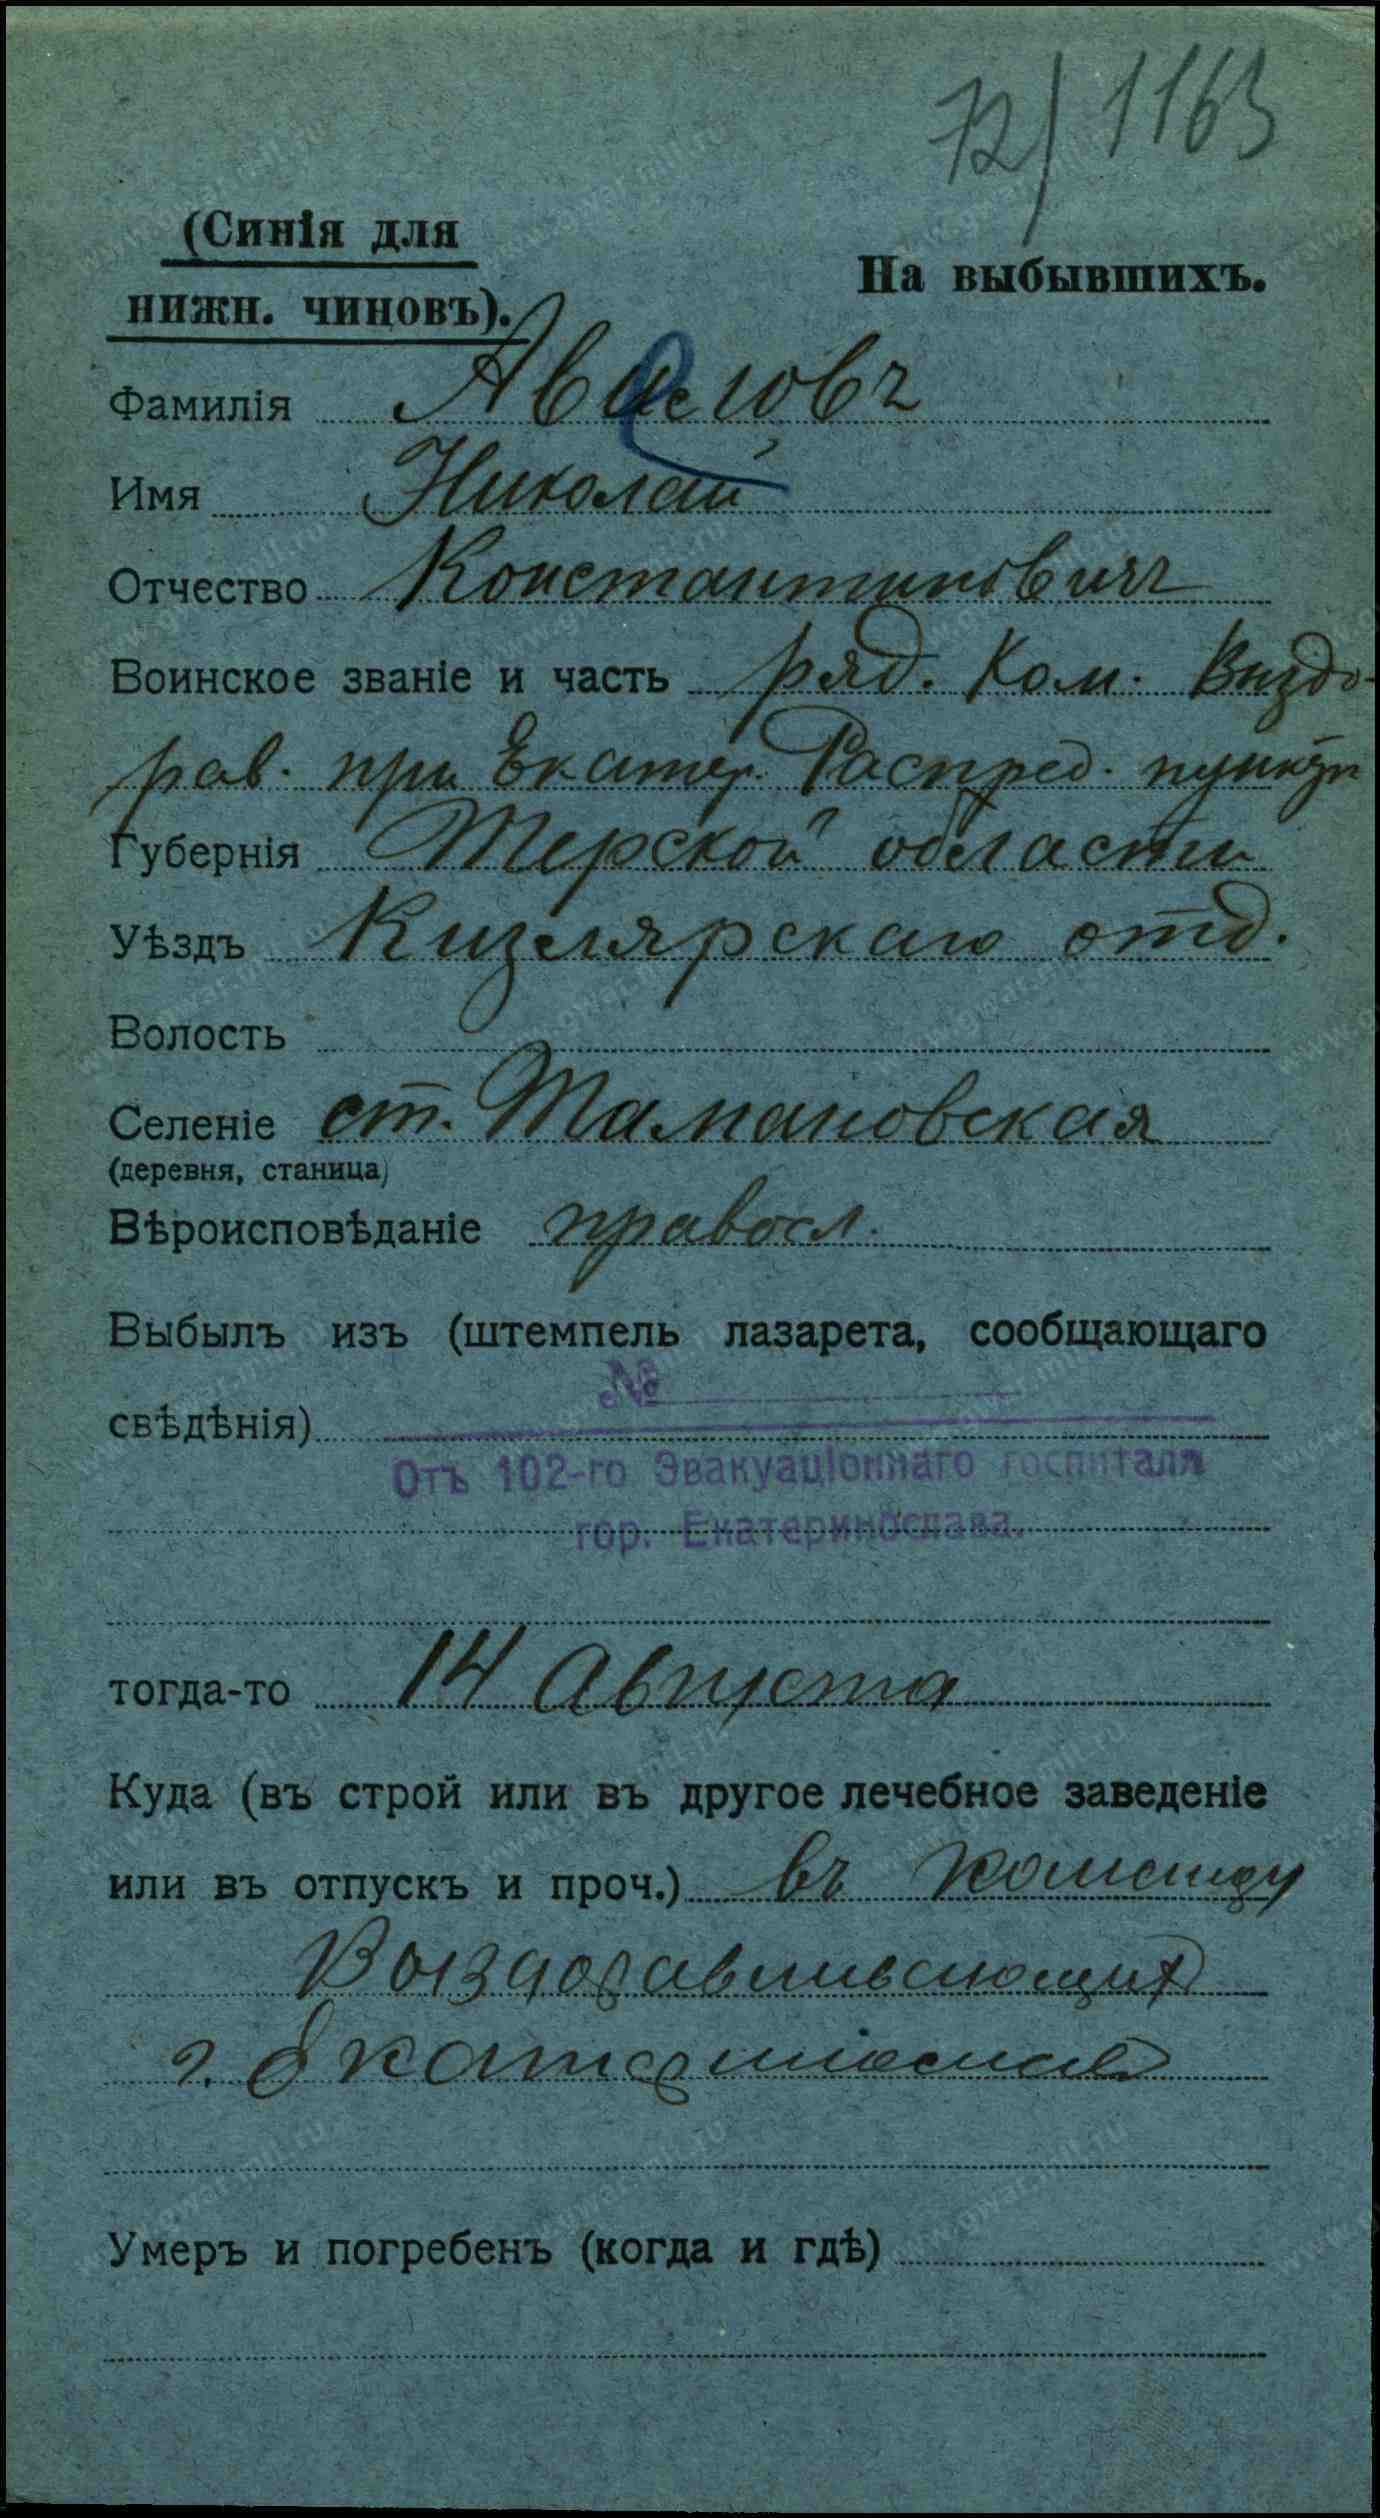 72/1163
(Синія для
нижн. чиновъ).
На выбывшихъ.
Фамилія
Имя Николай
Отчество Константиновичъ
Воинское званіе и часть ряд. Ком. Выздо-
рав. при Екатер. Распред. пункт
Губернія Терской области
Уѣздъ Кизлярскаго отд.
Волость
Селеніе ст. Тамановская
(деревня, станица)
Вѣроисповѣданіе правосл.
Выбылъ изъ (штемпель лазарета, сообщающаго
№
свѣдѣнія)
Отъ 102-го Эвакуаціоннаго госпиталя
гор. Екатеринослава.
тогда-то 14 Августа
Куда (въ строй или въ другое лечебное заведеніе
или въ отпускъ и проч.) въ команду
Выздоравливающих
г. Екатеринослав
Умеръ и погребенъ (когда и гдѣ)
www.gwar.mil.ru